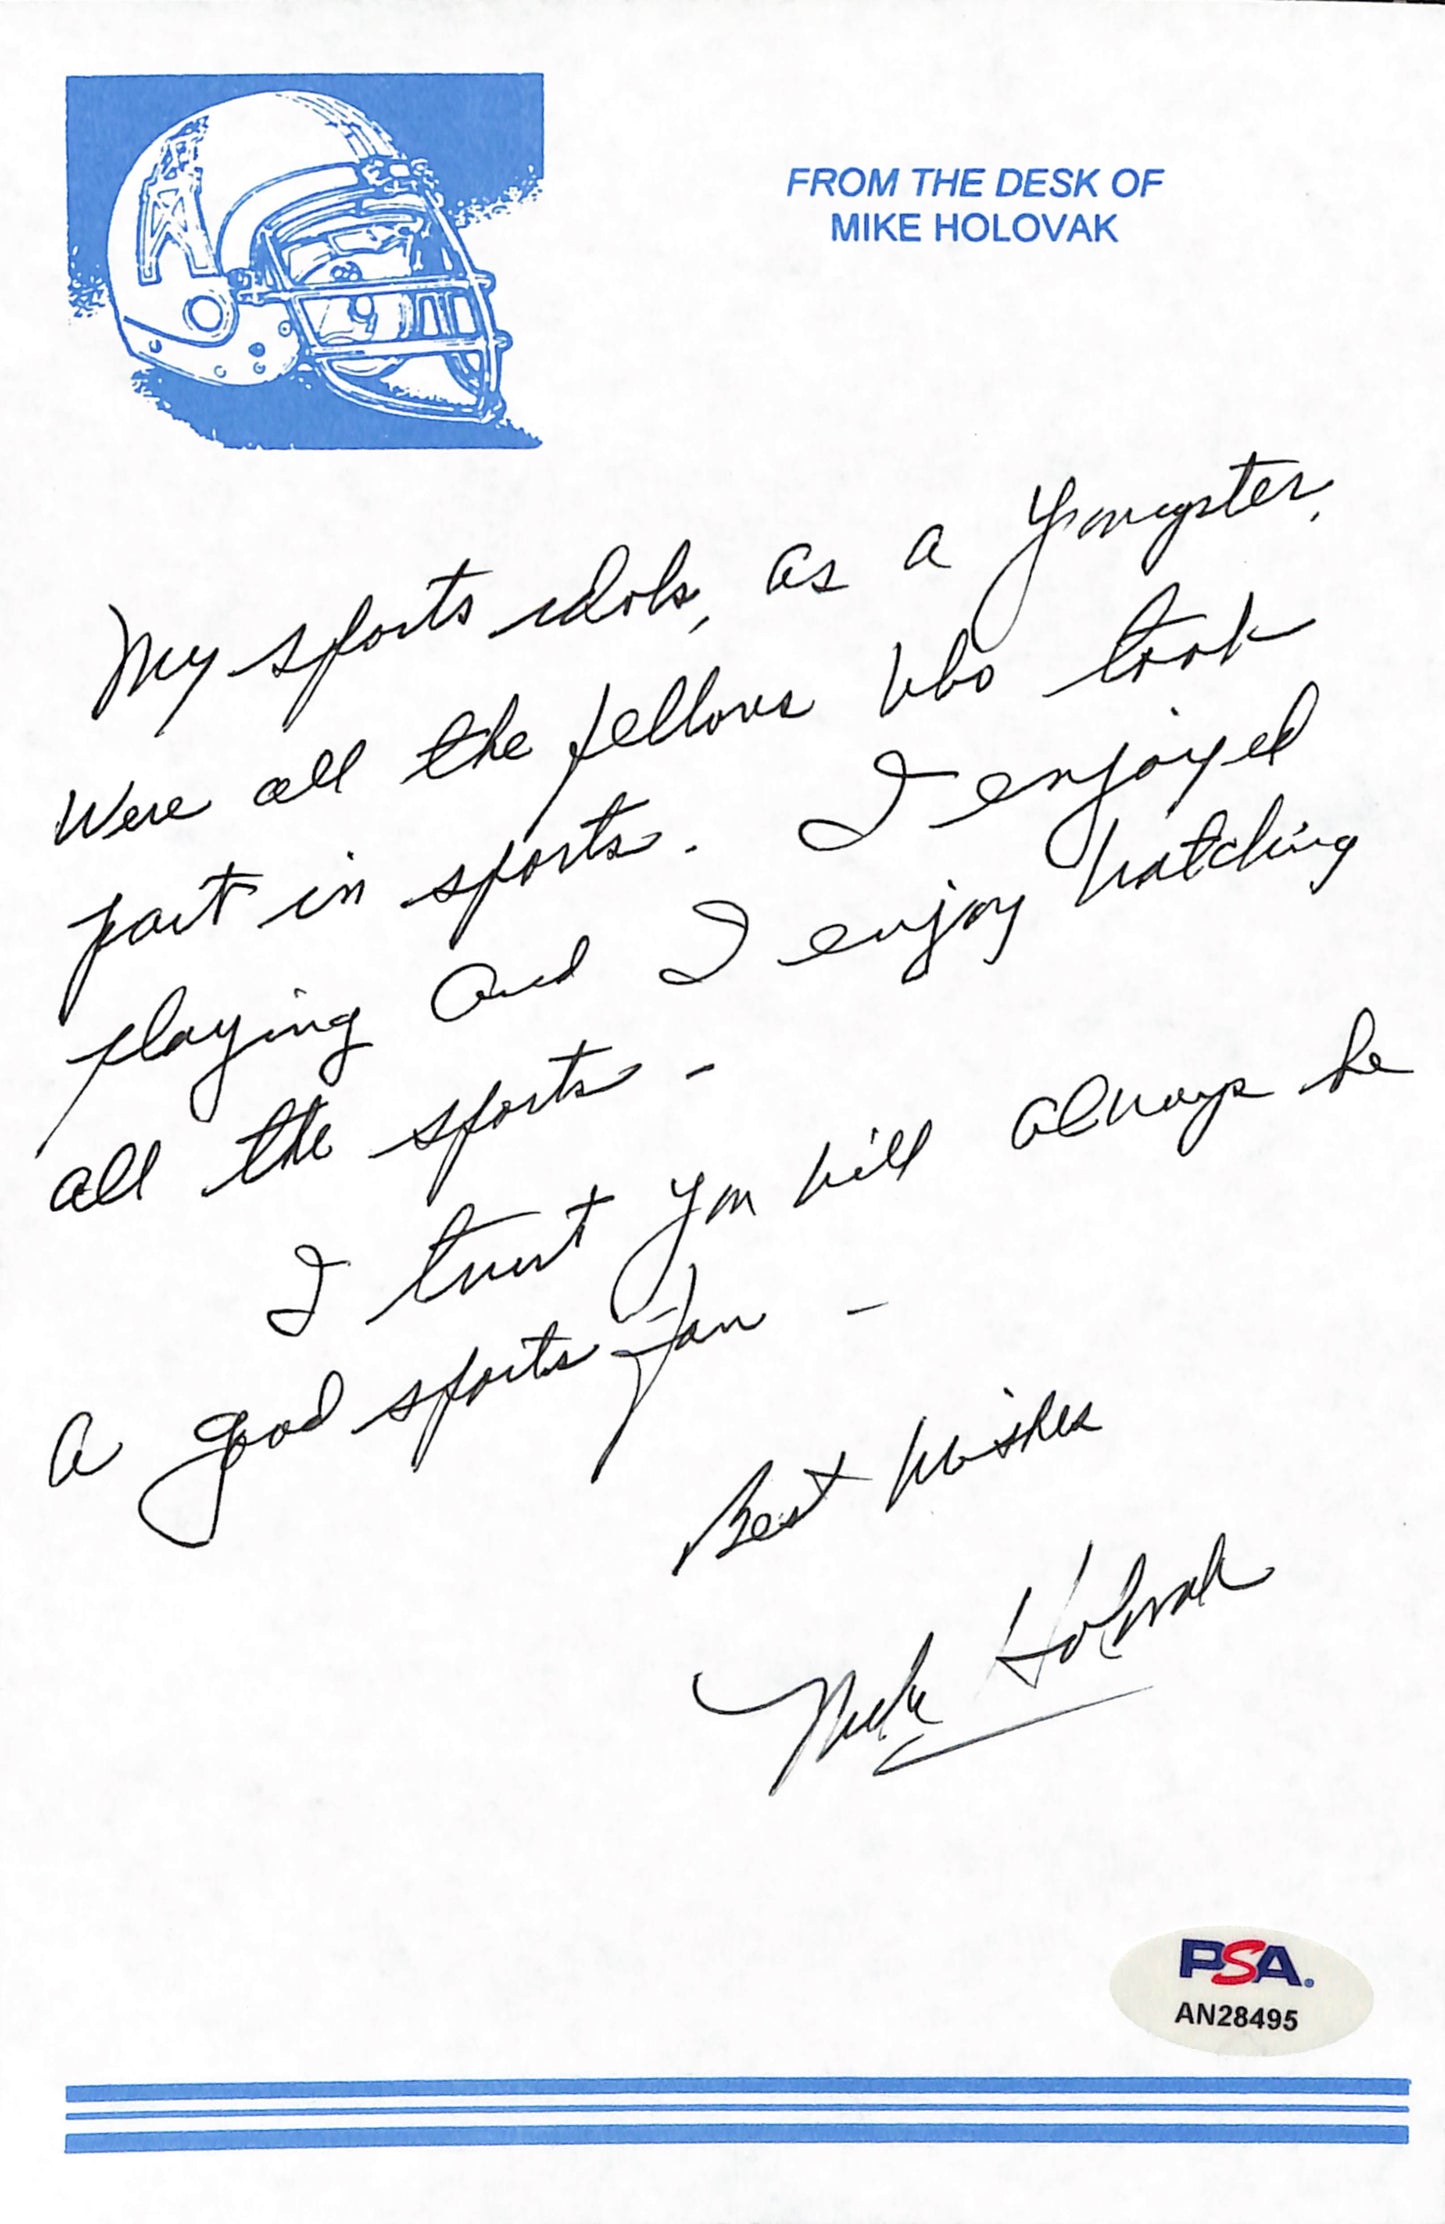 FROM THE DESK OF
MIKE HOLOVAK
My sports idols, as a youngster,
were all the fellows who took
part in sports. I enjoyed
playing and I enjoy watching
all the sports -
I trust you will always be
a good sports fan -
Best wishes
Mike Holovak
PSA.
AN28495